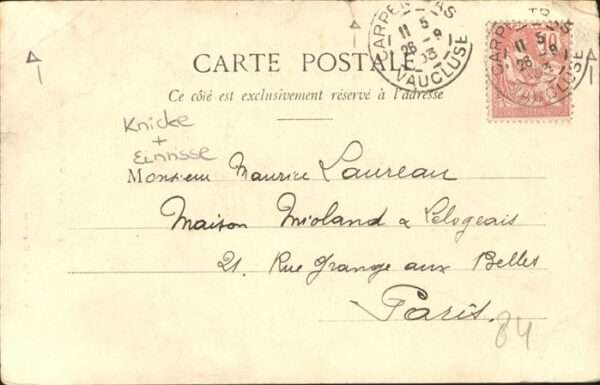 CARPENTRAS
11 5
26 -9
03
VAUCLUSE
10
CARPENTRAS
11 5
26 -9
03
VAUCLUSE
CARTE POSTALE
Ce côté est exclusivement réservé à l'adresse
Knicke
+
Einrisse
Monsieur Maurice Laureau
Maison Mioland & Lelogeais
21. Rue Grange aux Belles
Paris.
84